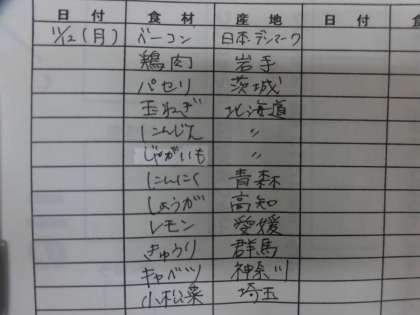 日 付 食 材 産 地 日 付 食
11/12(月) ベーコン 日本・デンマーク
鶏肉 岩手
パセリ 茨城
玉ねぎ 北海道
にんじん 〃
じゃがいも 〃
にんにく 青森
しょうが 高知
レモン 愛媛
きゅうり 群馬
キャベツ 神奈川
小松菜 埼玉